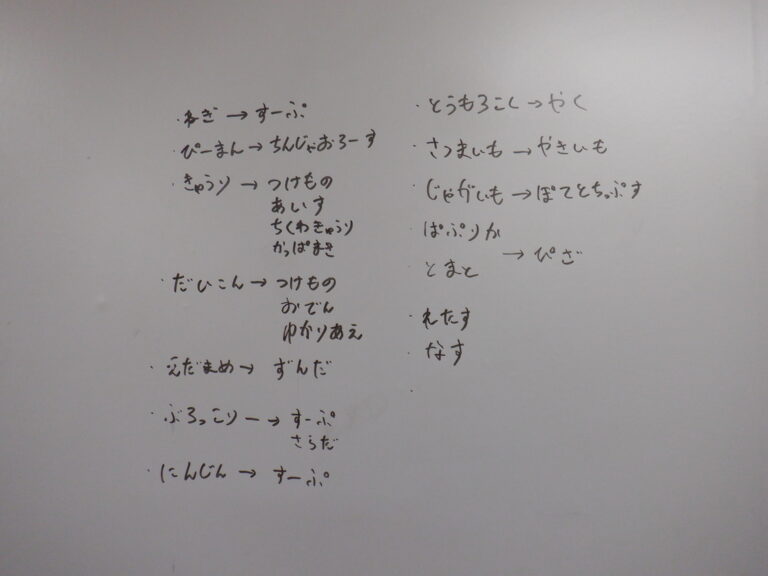 ・ねぎ→すーぷ
・ぴーまん→ちんじゃおろーす
・きゅうり→つけもの
あいす
ちくわきゅうり
かっぱまき
・だいこん→つけもの
おでん
ゆかりあえ
・えだまめ→ずんだ
・ぶろっこりー→すーぷ
さらだ
・にんじん→すーぷ
・とうもろこし→やく
・さつまいも→やきいも
・じゃがいも→ぽてとちっぷす
ぱぷりか
とまと →ぴざ
・れたす
・なす
・